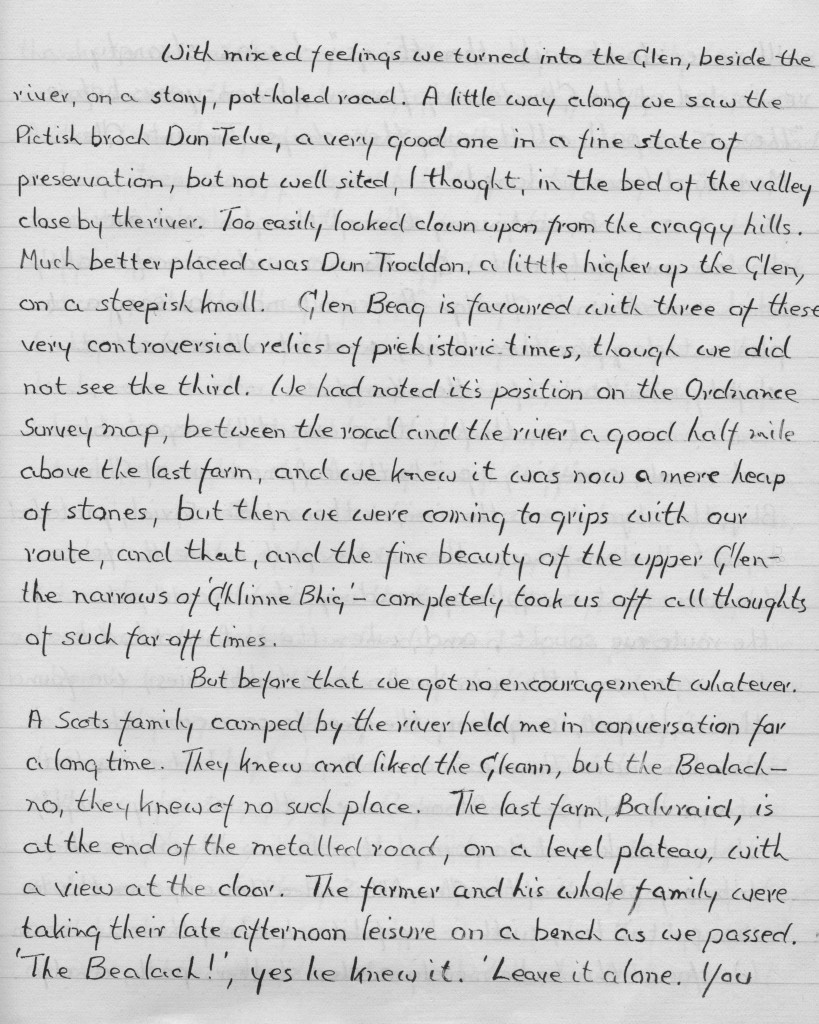 With mixed feelings we turned into the Glen, beside the
river, on a stony, pot-holed road. A little way along we saw the
Pictish broch Dun Telve, a very good one in a fine state of
preservation, but not well sited, I thought, in the bed of the valley
close by the river. Too easily looked down upon from the craggy hills.
Much better placed was Dun Troddon, a little higher up the Glen,
on a steepish knoll. Glen Beag is favoured with three of these
very controversial relics of prehistoric times, though we did
not see the third. We had noted it's position on the Ordnance
Survey map, between the road and the river a good half mile
above the last farm, and we knew it was now a mere heap
of stones, but then we were coming to grips with our
route, and that, and the fine beauty of the upper Glen-
the narrows of 'Ghlinne Bhig' - completely took us off all thoughts
of such far off times.
But before that we got no encouragement whatever.
A Scots family camped by the river held me in conversation for
a long time. They knew and liked the Gleann, but the Bealach-
no, they knew of no such place. The last farm, Balvraid, is
at the end of the metalled road, on a level plateau, with
a view at the door. The farmer and his whole family were
taking their late afternoon leisure on a bench as we passed.
'The Bealach!', yes he knew it. 'Leave it alone. You